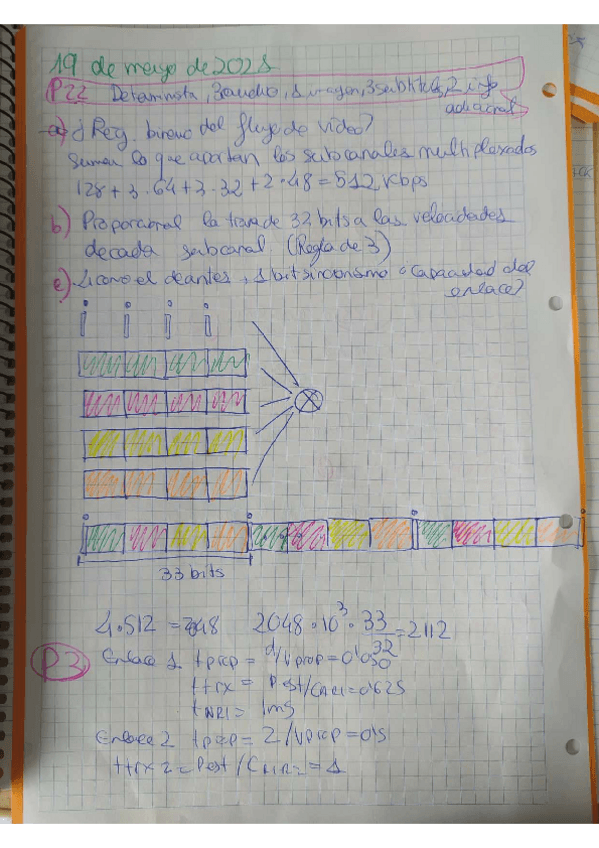 19 de mayo de 2021
P22 Determinista, 3 audio, 1 imagen, 3 subtítulos, 2 info
adicional
a) ¿Reg. binario del flujo de vídeo?
Sumar lo que aportan los subcanales multiplexados
128 + 3·64 + 3·32 + 2·48 = 512 Kbps
b) Proporcional la trama de 32 bits a las velocidades
de cada subcanal (Regla de 3)
c) 4 como el de antes, 1 bit sincronismo ¿Capacidad del
enlace?
33 bits
4·512 = 2048 2048·10³·33/32 = 2112
P3
Enlace 1 tprop = d/vprop = 0'050
ttrx = Pest/CNR1 = 0'625
tNR1 = 1ms
Enlace 2 tprop = 2/vprop = 0'5
ttrx 2 = Pest/ = 1